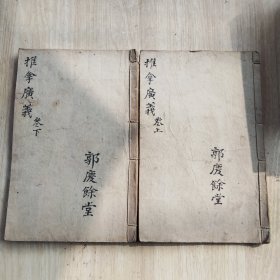 推拿廣義
卷上
郭慶餘堂
推拿廣義
卷下
郭慶餘堂